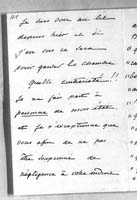 Je suis donc au lit
depuis hier et si
j'en
pour garder la chambre
Quelle contrariété !!
Je ne fais part à
personne de mon état
et je n'
vous afin de ne pas
être soupçonné de
négligence à votre endroit